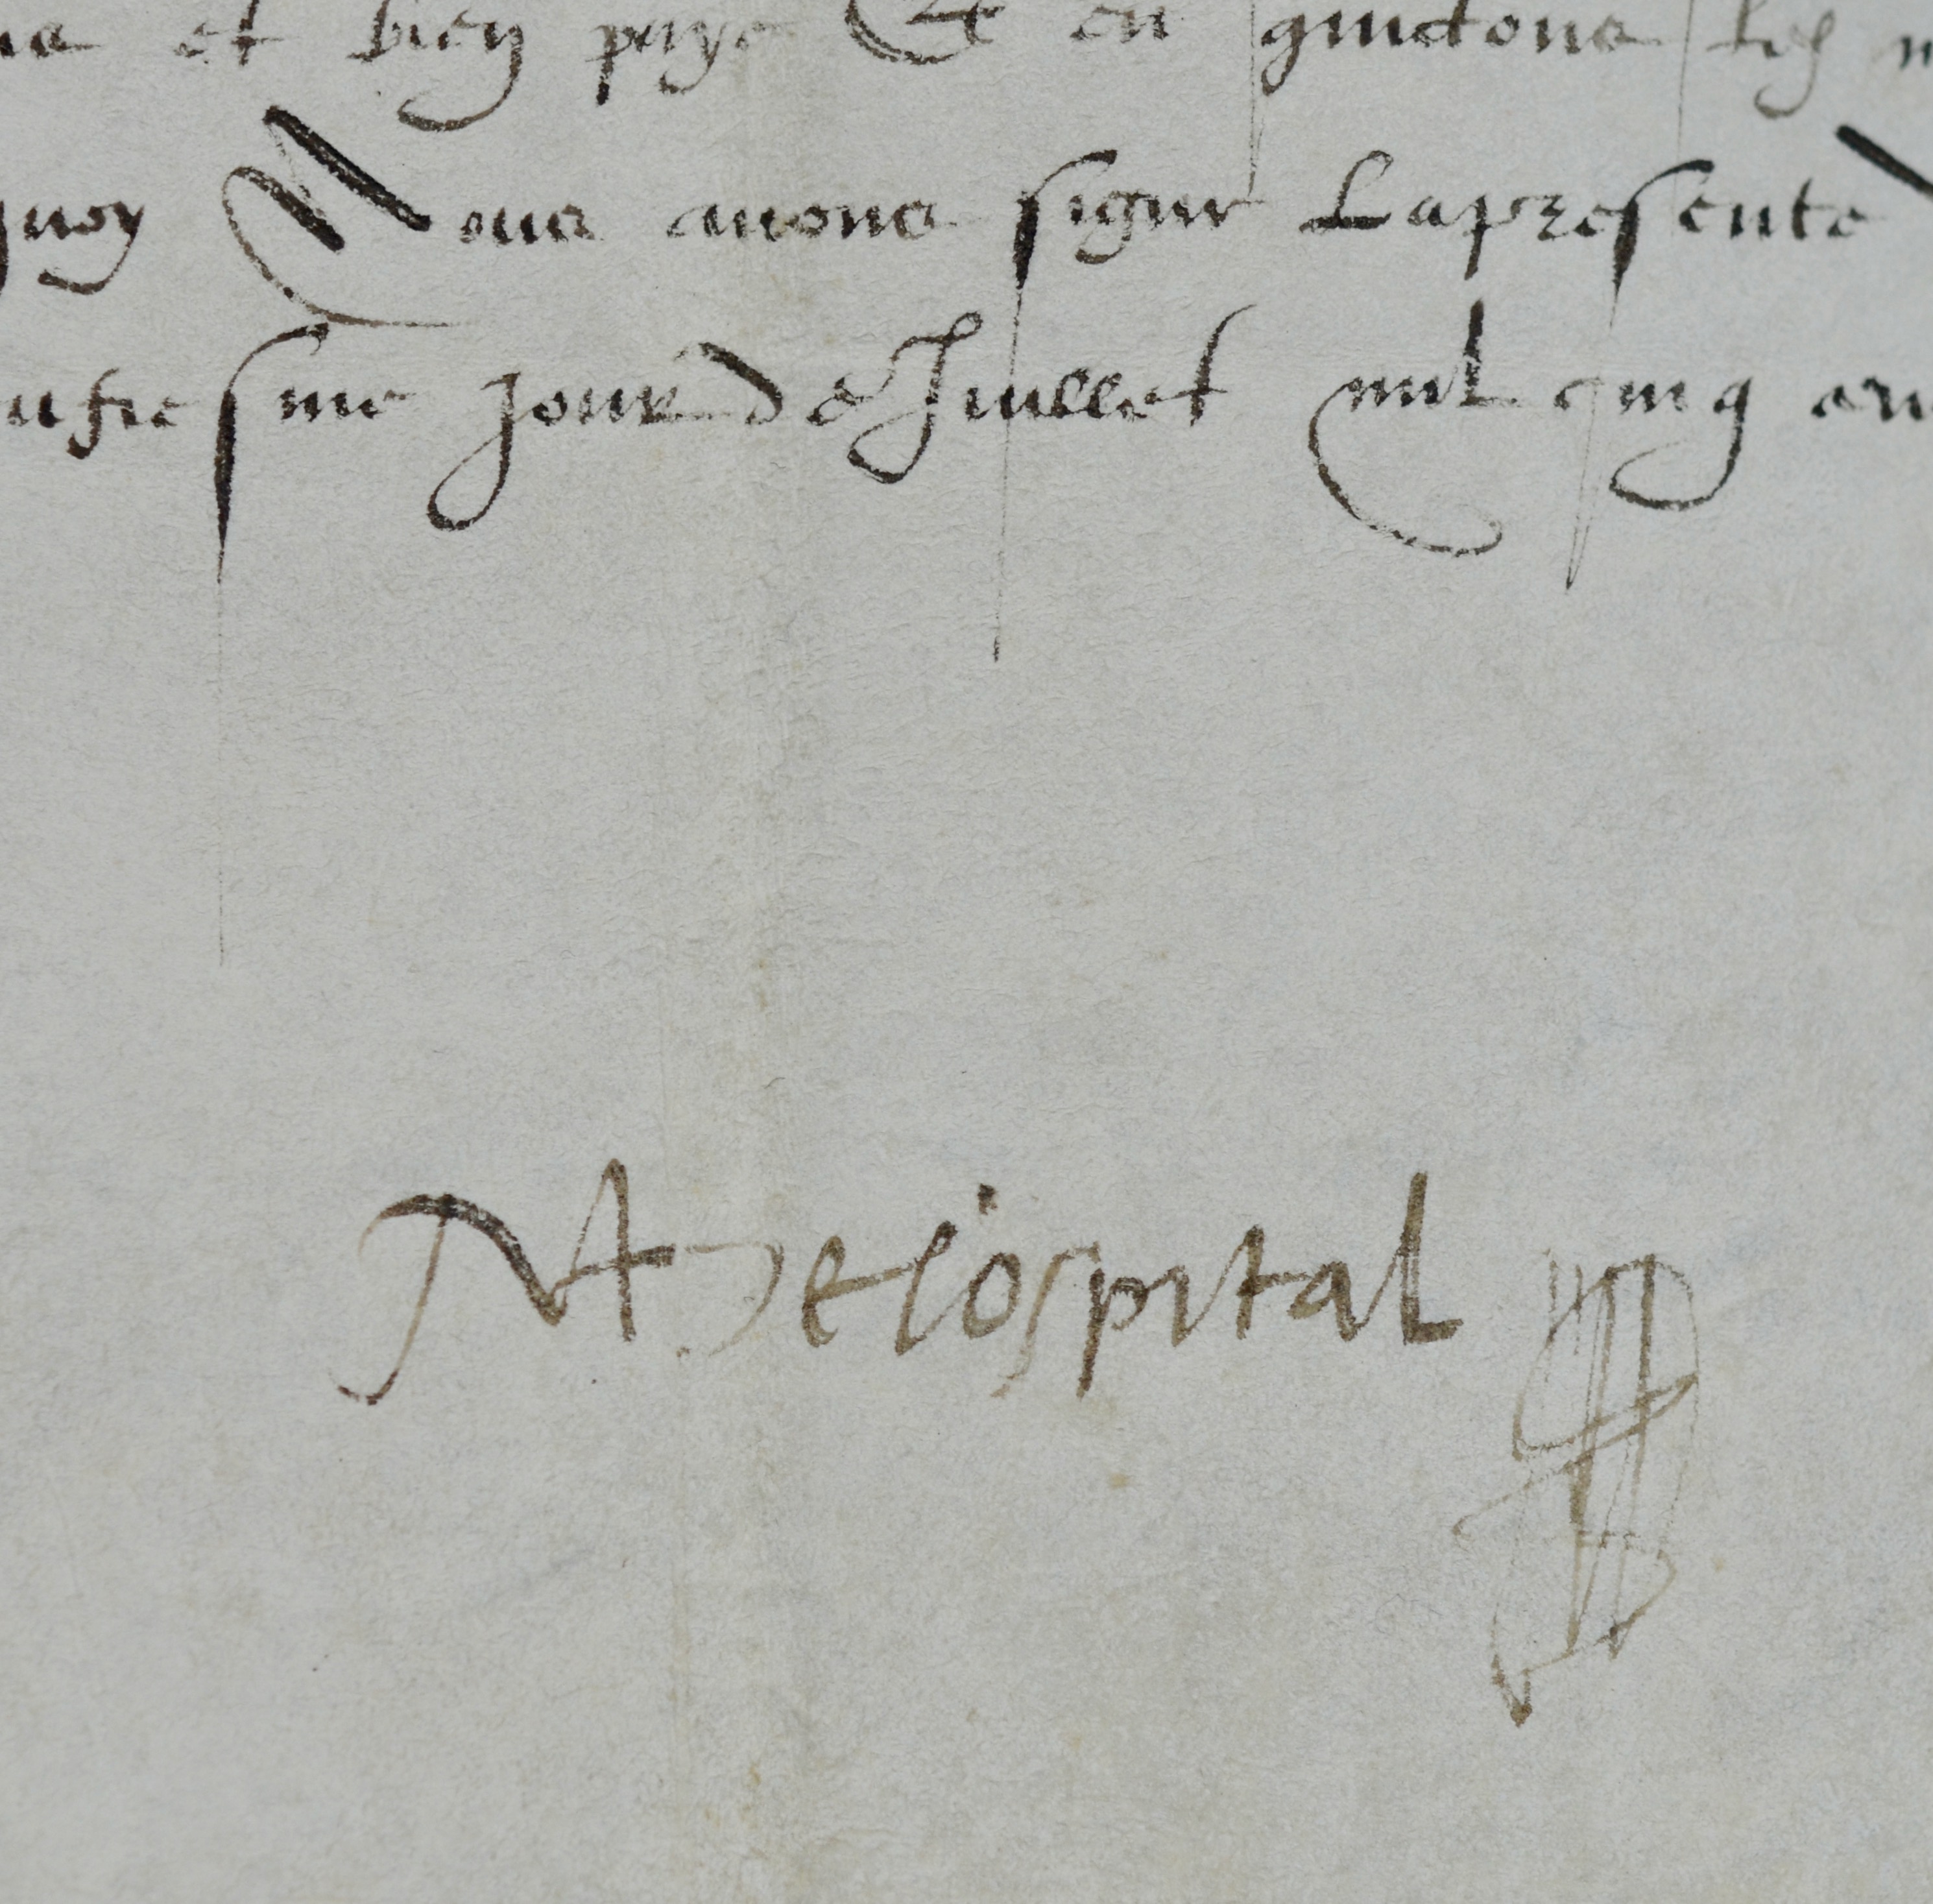 et bien paye Et en quictons les
quoy Nous auons signe Lapresente
ufiesme Jour de Juillet mil cinq
M de lospital